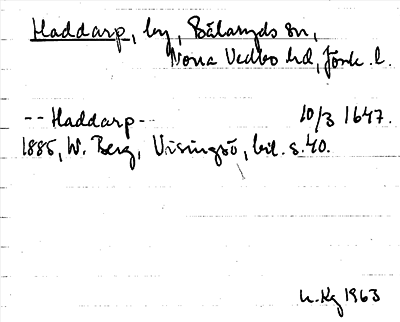 Haddarp, by, Bälaryds sn,
Norra Vedbo hd, Jönk. l.
-- Haddarp -- 10/3 1647.
1885, W. Berg, Visingsö, bil. s. 40.
1963